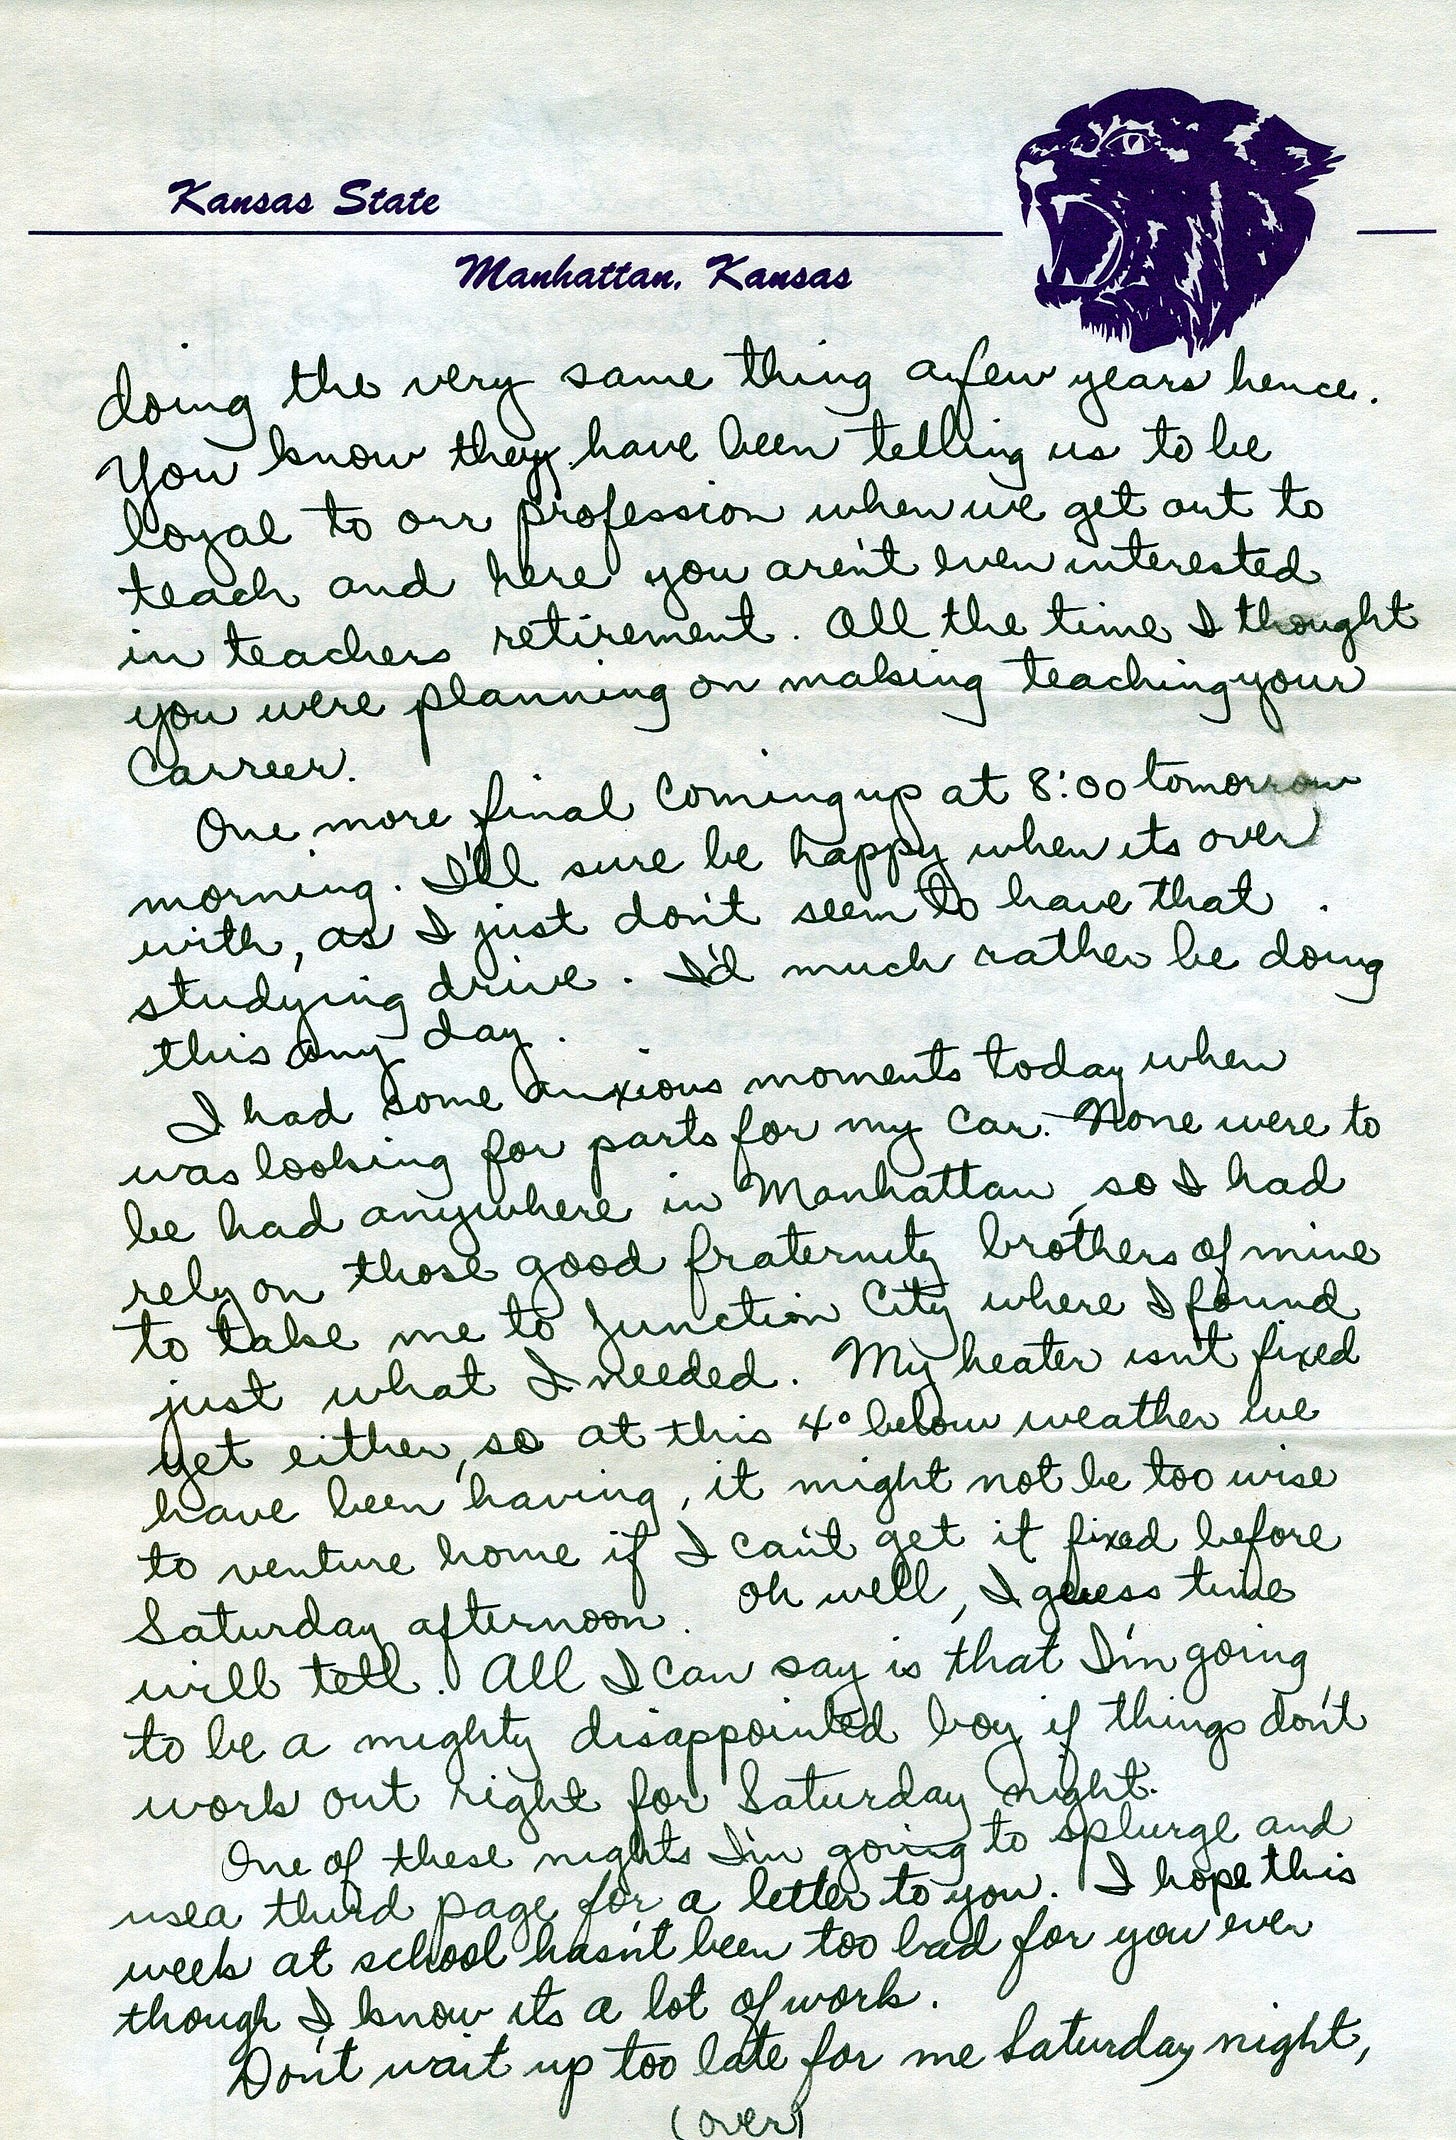 Kansas State
Manhattan, Kansas
doing the very same thing a few years hence.
You know they have been telling us to be
loyal to our profession when we get out to
teach and here you aren't even interested
in teachers retirement. All the time I thought
you were planning on making teaching your
carreer.
One more final coming up at 8:00 tomorrow
morning. I'll sure be happy when its over
with, as I just don't seem to have that
studying drive. I'd much rather be doing
this any day.
I had some anxious moments today when
was looking for parts for my car. None were to
be had anywhere in Manhattan, so I had
rely on those good fraternity brothers of mine
to take me to Junction City where I found
just what I needed. My heater isn't fixed
yet either, so at this 4° below weather we
have been having, it might not be too wise
to venture home if I can't get it fixed before
Saturday afternoon. Oh well, I guess time
will tell. All I can say is that I'm going
to be a mighty disappointed boy if things don't
work out right for Saturday night.
One of these nights I'm going to splurge and
use a third page for a letter to you. I hope this
week at school hasn't been too bad for you even
though I know its a lot of work.
Don't wait up too late for me Saturday night,
(over)